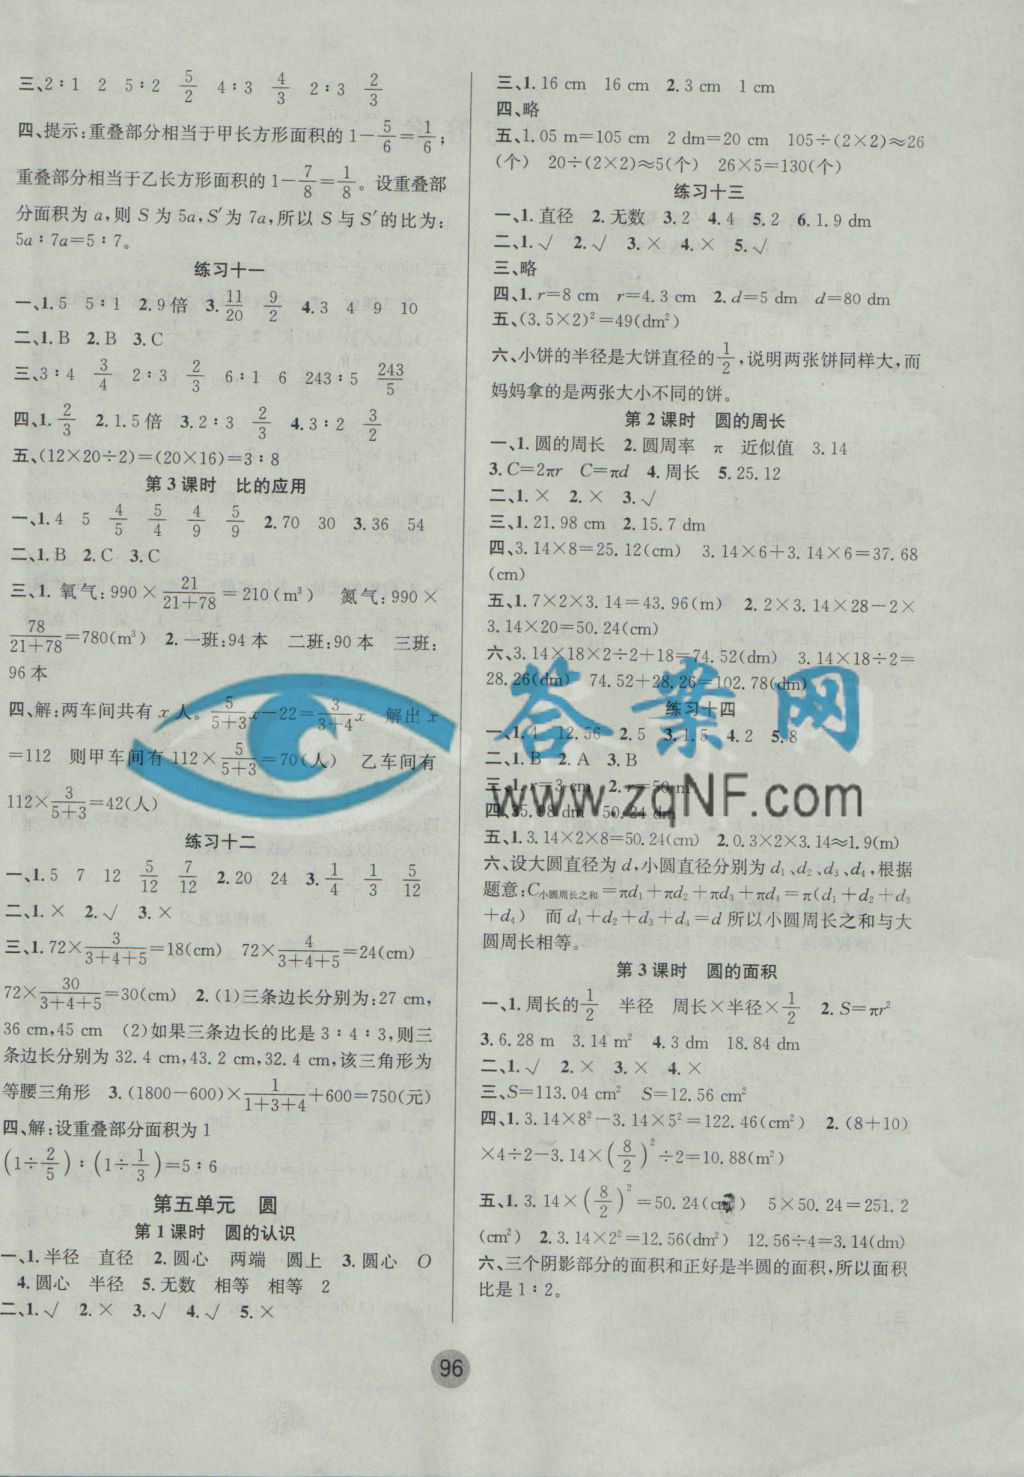 三、2∶1 2 5∶2 5/2 4∶3 4/3 2∶3 2/3
四、提示:重叠部分相当于甲长方形面积的1-5/6=1/6;
重叠部分相当于乙长方形面积的1-7/8=1/8。设重叠部
分面积为a,则S为5a,S′为7a,所以S与S′的比为:
5a∶7a=5∶7。
练习十一
一、1.5 5∶1 2.9倍 3.11/20 9/2 4.3 4 9 10
二、1.B 2.B 3.C
三、3∶4 3/4 2∶3 2/3 6∶1 6 243∶5 243/5
四、1.2/3 2.1.5倍 3.2∶3 2/3 4.3∶2 3/2
五、(12×20÷2)=(20×16)=3∶8
第3课时 比的应用
一、1.4 5 4/5 5/4 4/9 5/9 2.70 30 3.36 54
二、1.B 2.C 3.C
三、1.氧气:990×21/(21+78)=210(m³) 氮气:990×
78/(21+78)=780(m³) 2.一班:94本 二班:90本 三班:
96本
四、解:两车间共有x人。5/(5+3)x-22=3/(3+4)x 解出x
=112 则甲车间有112×5/(5+3)=70(人) 乙车间有
112×3/(5+3)=42(人)
练习十二
一、1.5 7 12 5/12 7/12 2.20 24 3.1/4 1/3 5/12
二、1.× 2.√ 3.×
三、1.72×3/(3+4+5)=18(cm) 72×4/(3+4+5)=24(cm)
72×30/(3+4+5)=30(cm) 2.(1)三条边长分别为:27 cm,
36 cm,45 cm (2)如果三条边长的比是3∶4∶3,则三
条边长分别为32.4 cm,43.2 cm,32.4 cm,该三角形为
等腰三角形 3.(1800-600)×1/(1+3+4)+600=750(元)
四、解:设重叠部分面积为1
(1÷2/5)∶(1÷1/3)=5∶6
第五单元 圆
第1课时 圆的认识
一、1.半径 直径 2.圆心 两端 圆上 3.圆心 O
4.圆心 半径 5.无数 相等 相等 2
二、1.√ 2.× 3.√ 4.√ 5.×
三、1.16 cm 16 cm 2.3 cm 1 cm
四、略
五、1.05 m=105 cm 2 dm=20 cm 105÷(2×2)≈26
(个) 20÷(2×2)≈5(个) 26×5=130(个)
练习十三
一、1.直径 2.无数 3.2 4.4 5.2 6.1.9 dm
二、1.√ 2.√ 3.× 4.× 5.√
三、略
四、1.r=8 cm r=4.3 cm 2.d=5 dm d=80 dm
五、(3.5×2)²=49(dm²)
六、小饼的半径是大饼直径的1/2,说明两张饼同样大,而
妈妈拿的是两张大小不同的饼。
第2课时 圆的周长
一、1.圆的周长 2.圆周率 π 近似值 3.14
3.C=2πr C=πd 4.周长 5.25.12
二、1.× 2.× 3.√
三、1.21.98 cm 2.15.7 dm
四、3.14×8=25.12(cm) 3.14×6+3.14×6=37.68
(cm)
五、1.7×2×3.14=43.96(m) 2.2×3.14×28-2×
3.14×20=50.24(cm)
六、3.14×18×2÷2+18=74.52(dm) 3.14×18÷2=
28.26(dm) 74.52+28.26=102.78(dm)
练习十四
一、1.4 12.56 2.5 3.1.5 4.2 5.8
二、1.B 2.A 3.B
三、1.r=3 cm 2.r=50 m
四、35.98 dm 50.24 dm
五、1.3.14×2×8=50.24(cm) 2.0.3×2×3.14≈1.9(m)
六、设大圆直径为d,小圆直径分别为d₁、d₂、d₃、d₄,根据
题意:C小圆周长之和=πd₁+πd₂+πd₃+πd₄=π(d₁+d₂+d₃
+d₄) 而d₁+d₂+d₃+d₄=d 所以小圆周长之和与大
圆周长相等。
第3课时 圆的面积
一、1.周长的1/2 半径 周长×半径×1/2 2.S=πr²
3.6.28 m 3.14 m² 4.3 dm 18.84 dm
二、1.√ 2.× 3.× 4.×
三、S=113.04 cm² S=12.56 cm²
四、1.3.14×8²-3.14×5²=122.46(cm²) 2.(8+10)
×4÷2-3.14×(8/2)²÷2=10.88(m²)
五、1.3.14×(8/2)²=50.24(cm²) 5×50.24=251.2
(cm²) 2.3.14×2²=12.56(dm²) 12.56÷4=3.14(dm²)
六、三个阴影部分的面积和正好是半圆的面积,所以面积
比是1∶2。
答案网
www.zqNF.com
96